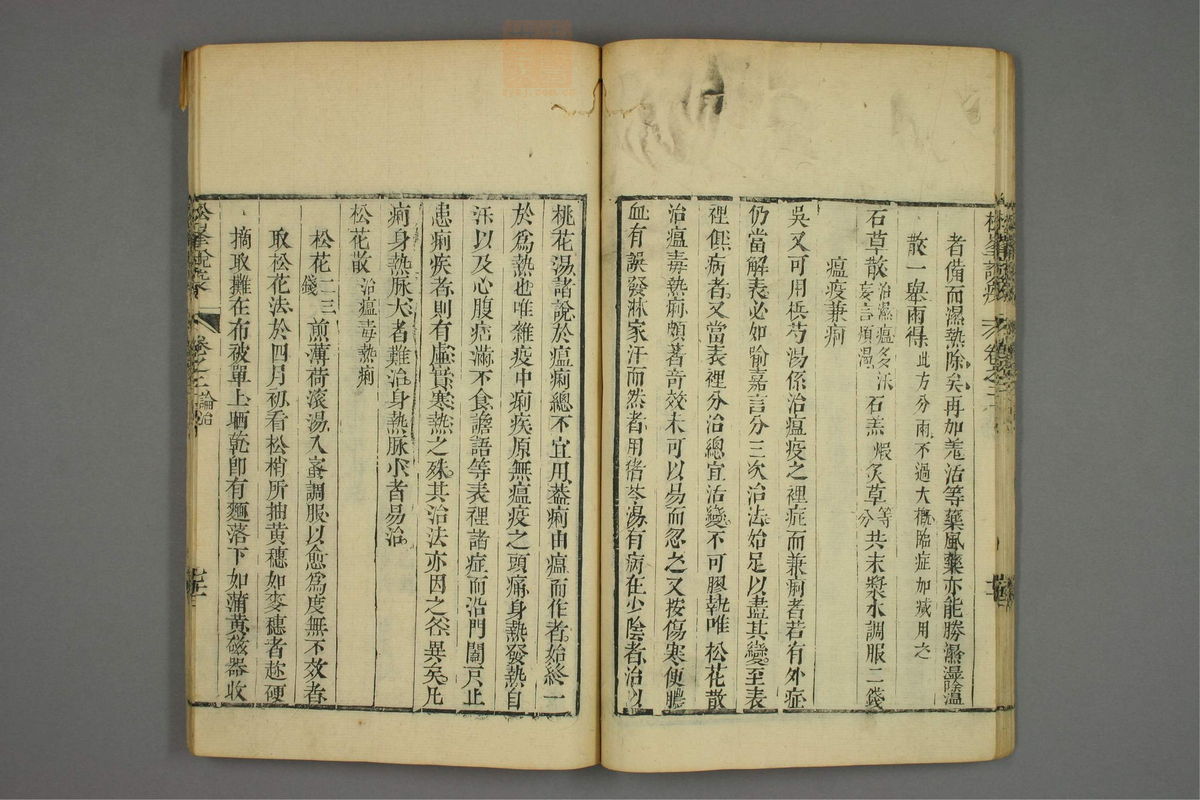 者備而濕熱除矣再加羌活等藥風藥亦能勝濕
散一舉兩得此方分兩不過大概臨症加減用之
石草散治濕瘟多汗妄言煩渴石羔煆炙草等分共末漿水調服二錢
瘟疫兼痢
吳又可用梹芍湯係治瘟疫之裡症而兼痢者若有外症
仍當解表必如喻嘉言分三次治法始足以盡其變至表
裡俱病者又當表裡分治總宜活變不可膠執唯松花散
治瘟毒熱痢頗著奇效未可以易而忽之又按傷寒便膿
血有誤發淋家汗而然者用猪苓湯有病在少陰者治以
桃花湯諸說於瘟痢總不宜用葢痢由瘟而作者始終一
於為熱也唯雜疫中痢疾原無瘟疫之頭痛身熱發熱自
汗以及心腹痞滿不食譫語等表裡諸症而沿門闔戶止
患痢疾者則有虛實寒熱之殊其治法亦因之各異矣凡
痢身熱脉大者難治身熱脉小者易治
松花散治瘟毒熱痢
松花二三錢煎薄荷滾湯入蜜調服以愈為度無不效者
取松花法於四月初看松梢所抽黃穗如麥穗者趂硬
摘取攤在布被單上晒乾即有麵落下如蒲黃磁器收
松峯說疫
卷之二
論治